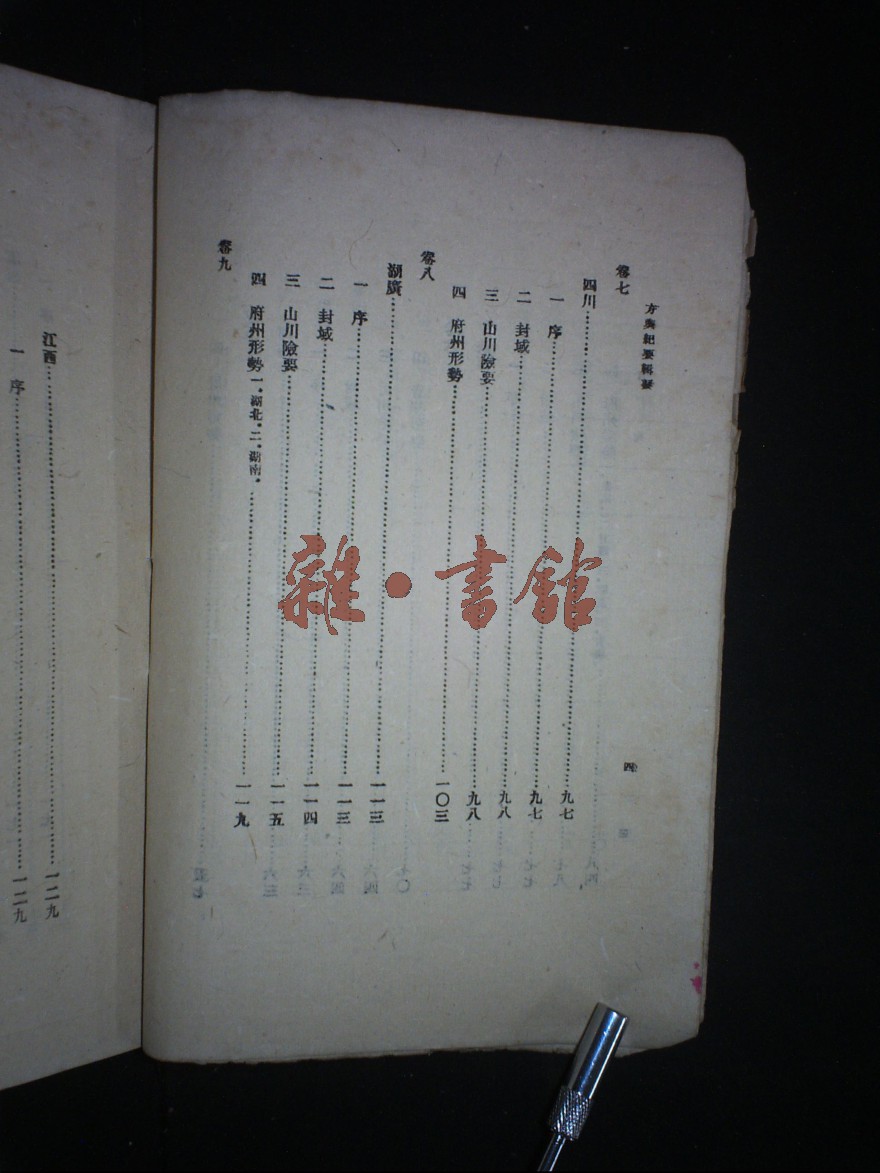 方輿紀要輯要
四
卷七
四川……九七
一 序……九七
二 封域……九八
三 山川險要……九八
四 府州形勢……一〇三
卷八
湖廣……一一三
一 序……一一三
二 封域……一一四
三 山川險要……一一五
四 府州形勢一．湖北．二．湖南．……一一九
卷九
江西……一二九
一 序……一二九
雜·書館